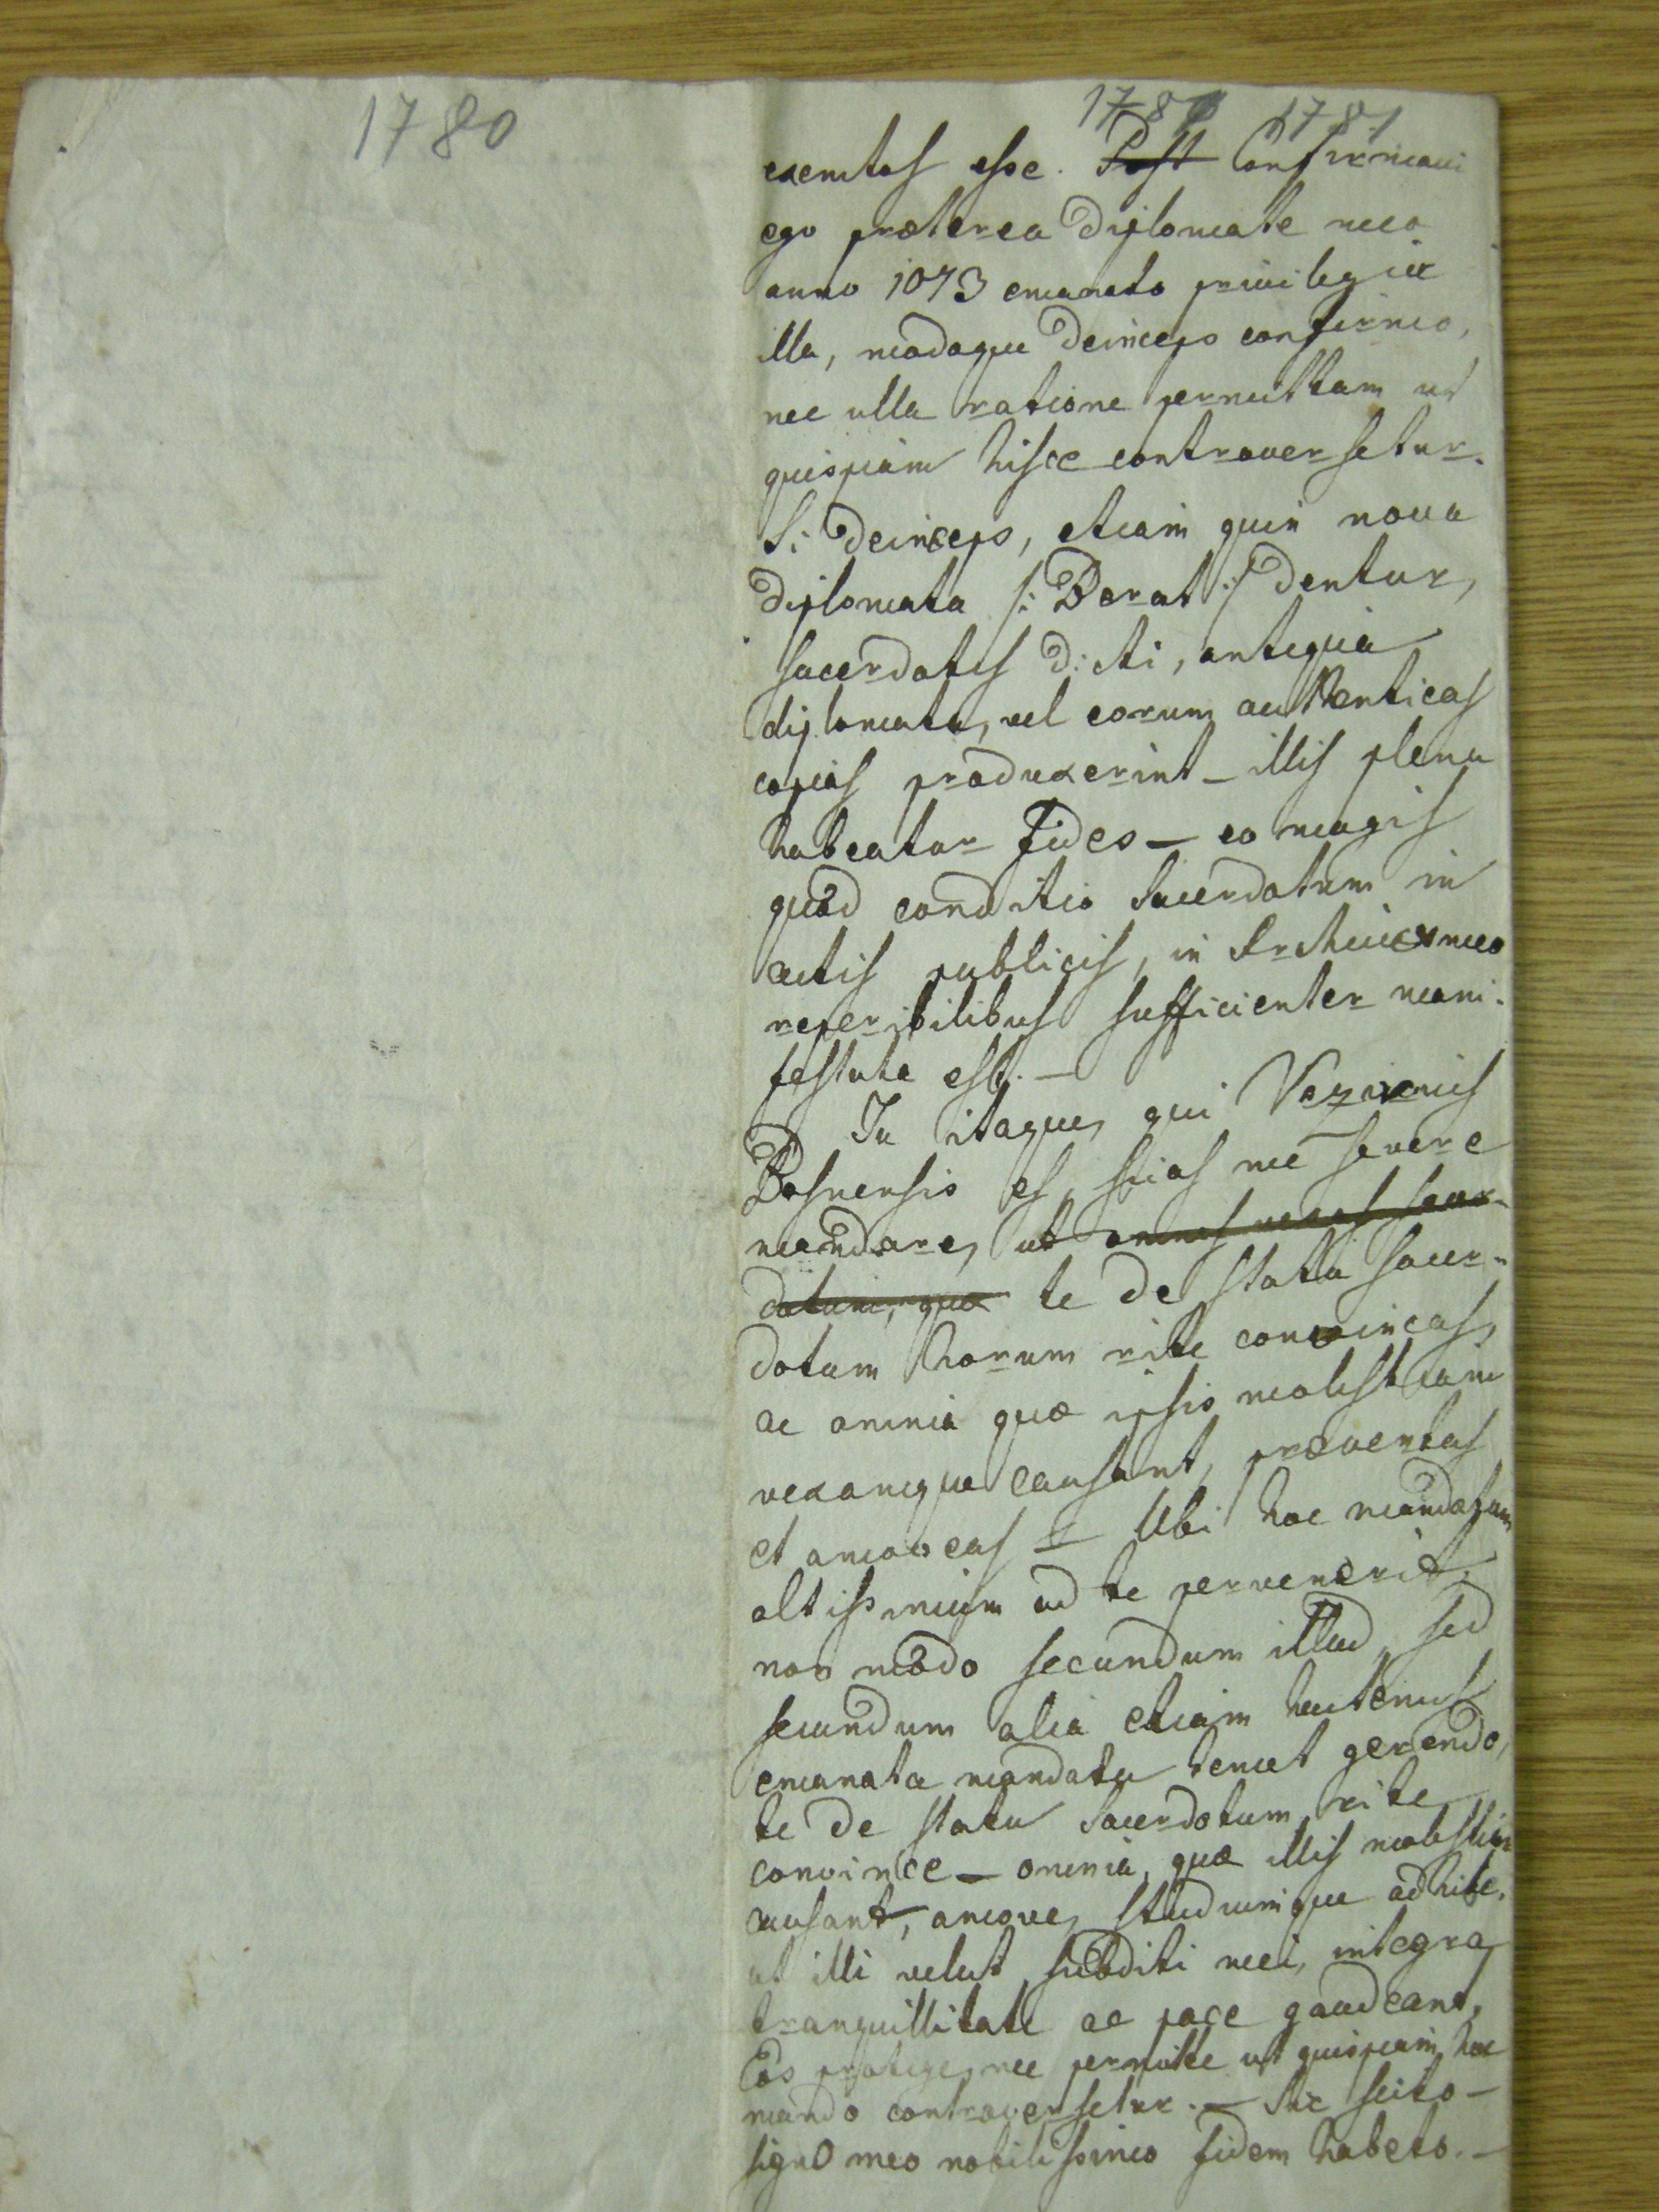 1780
1780 1781
exemtos esse. Post Confirmavi
ego præterea Diplomate meo
anno 1073 emanato privilegia
illa, modoque deinceps confirmo,
nec ulla ratione permittam ut
quispiam hisce controversetur.
Si deinceps, etiam quin nova
diplomata /: Berat :/ dentur,
sacerdotes dicti, antiqua
diplomata, vel eorum authenticas
copias produxerint – illis plena
habeatur fides – eo magis
quod conditio Sacerdotum in
actis publicis, in Archivo meo
reperibilibus sufficienter mani-
festata est. –
Tu itaque, qui Vezirius
Bosnensis es, scias me severe
mandare, ut omnes vexas sacer-
dotum, quæ te de statu sacer-
dotum horum rite convincas,
ac omnia quæ ipsis molestiam
vexamque causant, prævertas
et amoveas – Ubi hoc mandatum
altissimum ad te pervenerit,
non modo secundum illud, sed
secundum alia etiam hactenus
emanata mandata temet gerendo,
te de statu Sacerdotum rite
convince – omnia, quæ illis molestiam
causant, amove, studiumque adhibe,
ut illi velut subditi mei, integra
tranquillitate ac pace gaudeant,
Eos protege, nec permitte ut quispiam hoc
mando controversetur. – Sic scito –
signo meo nobilissimo fidem habeto. –